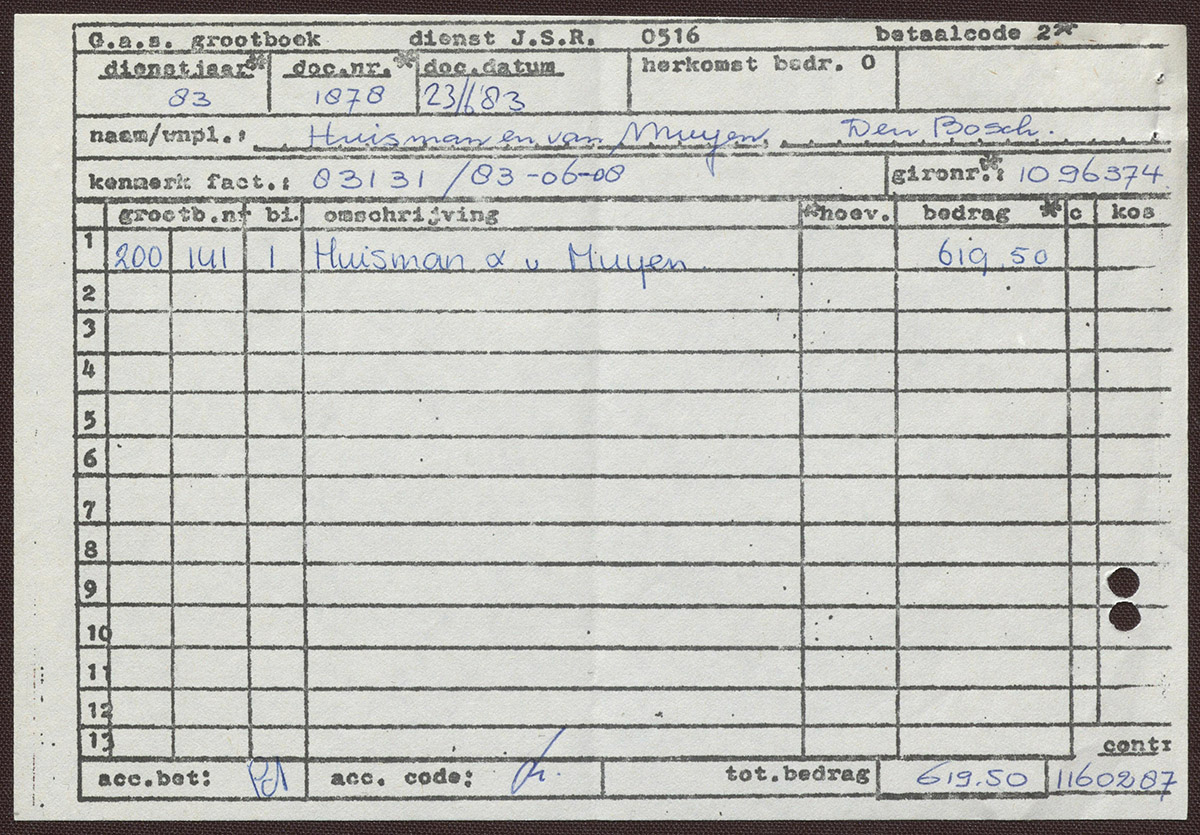 G.a.s. grootboek dienst J.S.R. 0516 betaalcode 2*
dienstjaar* doc.nr.* doc.datum herkomst bedr. 0
83 1878 23/6 83
naam/wnpl.: Huisman en van Muyen Den Bosch.
kenmerk fact.: 83131 /83-06-08 gironr.*: 1096374
grootb.nr bi. omschrijving *hoev. bedrag * c kos
1 200 141 1 Huisman & v Muyen 619.50
2
3
4
5
6
7
8
9
10
11
12
13
contr
acc.bet: acc. code: tot.bedrag 619.50 1160287